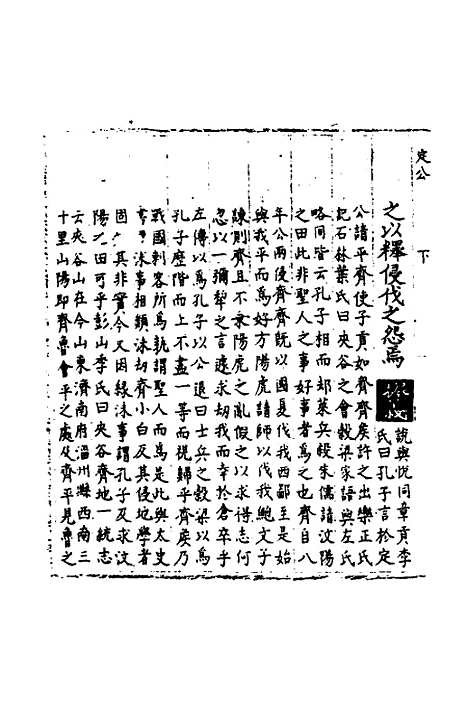 定公 下
之以釋侵伐之怨焉
說與悅同章貢李
氏曰孔子言於定
公請平齊使子貢如齊齊矦許之出樂正氏
記石林葉氏曰夾谷之會穀梁家語與左氏
略同皆云孔子相而却萊兵殺朱儒請汶陽
之田此非聖人之事好事者爲之也齊自八
年公兩侵齊齊旣以國夏伐我西鄙至是始
與我平而爲好方陽虎請師以伐我鮑文子
諫則齊且不乗陽虎之亂假之以求得志何
忽以一彌犂之言遽求刼我而幸於倉卒乎
左傳以爲孔子以公退曰士兵之穀梁以爲
孔子歷階而上不盡一等而視歸乎齊矦乃
戰國刺客所爲孰謂聖人而爲是此與太史
沬事相類沬刼齊小白反其侵地學者
固其非實今又因緣沬事謂孔子反求汶
陽田可乎彭山李氏曰夾谷齊地一統志
云夾谷山在今山東濟南府淄州縣西南三
十里山陽即齊魯會平之處及齊平見魯之